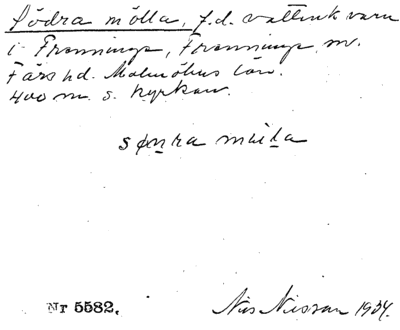 Södra mölla, f.d. vattenkvarn
i Frenninge, Frenninge sn.
Färs hd. Malmöhus län.
400 m. s. kyrkan.
Nr 5582.
Nils Nilsson 1934.